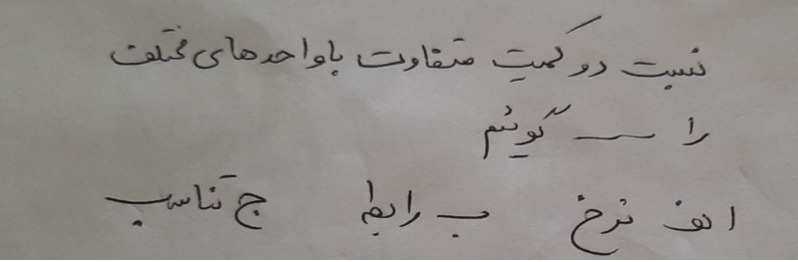 نسبت دو کمیت متفاوت با واحدهای مختلف
را ـــ گوئیم
الف نرخ ب رابطه ج تناسب